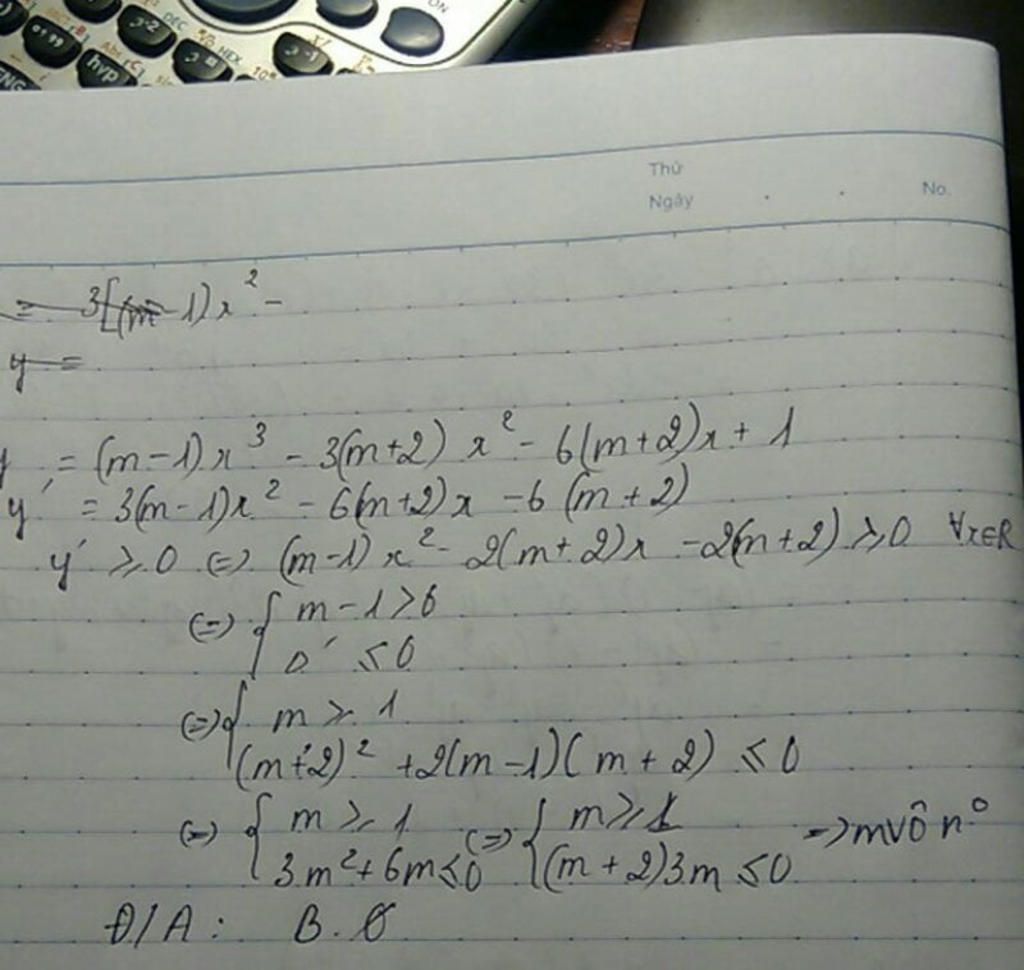 ON
DEC
HEX
hyp
ENG
Thứ
Ngày
No.
= 3[(m-1)x² -
y =
y = (m-1)x³ - 3(m+2) x² - 6(m+2)x + 1
y' = 3(m-1)x² - 6(m+2)x - 6 (m+2)
y' ≥ 0 (=) (m-1) x² - 2(m+2)x - 2(m+2) ≥ 0 ∀x∈R
(=) { m-1 > 0
Δ' ≤ 0
(=) { m ≥ 1
(m+2)² + 2(m-1)(m+2) ≤ 0
(=) { m ≥ 1 (=) { m ≥ 1 => m vô n°
3m² + 6m ≤ 0 (m+2)3m ≤ 0
Đ/A : B. Ø